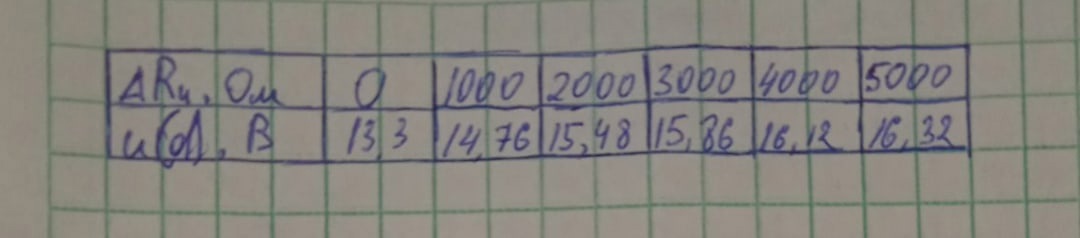 ΔRн, Ом 0 1000 2000 3000 4000 5000
u(d), В 13,3 14,76 15,48 15,86 16,12 16,32